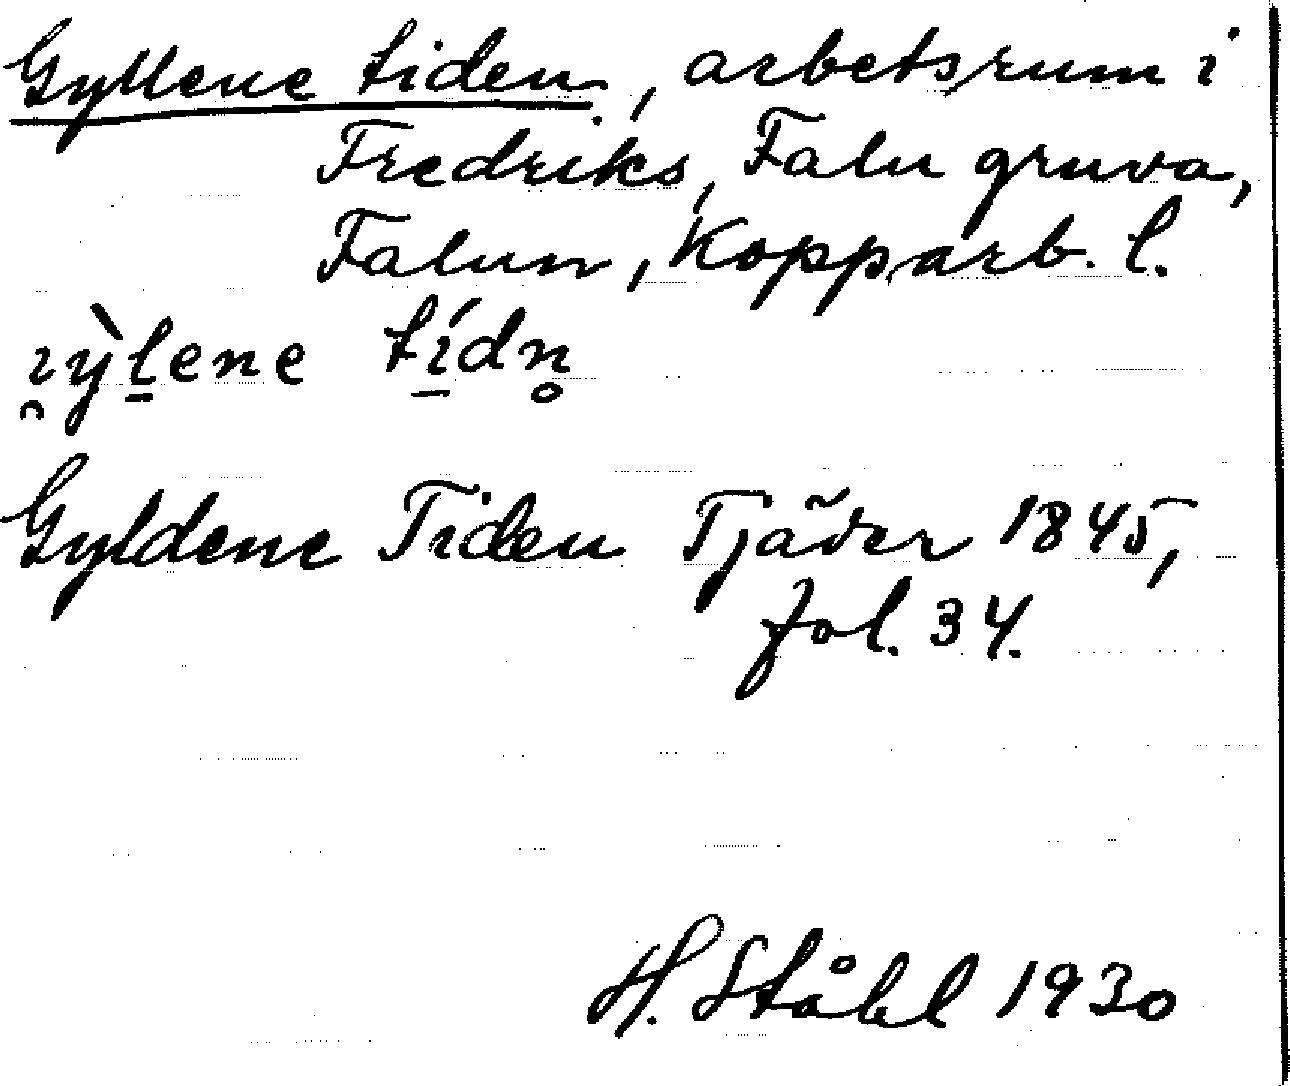 Gyllene tiden, arbetsrum i
Fredriks, Falu gruva,
Falun, Kopparb. l.
ı̯ỳl̠ene tí̠dn̥
Gyldene Tiden Tjäder 1845,
fol. 34.
H. Ståhl 1930